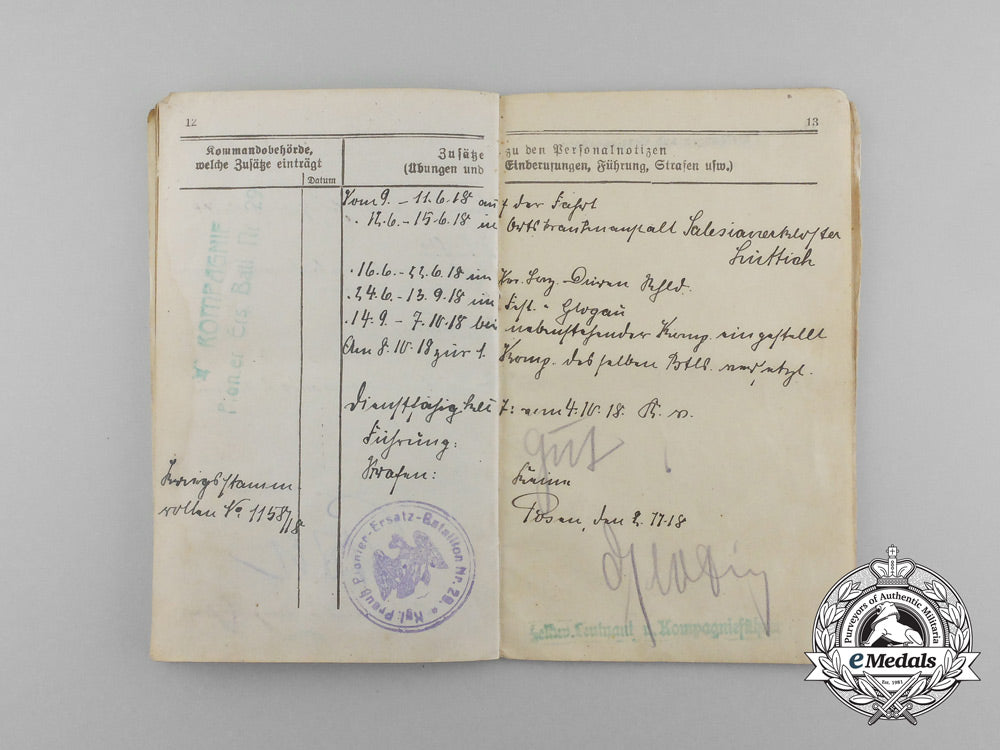 12
13
Kommandobehörde,
welche Zusätze einträgt
Datum
Zusätze zu den Personalnotizen
(Übungen und Einberufungen, Führung, Strafen usw.)
Vom 9. - 11.6.18 auf der Fahrt
" 12.6. - 15.6.18 in Ortskrankenanstalt Salesianerkloster
Lüttich
" 16.6. - 22.6.18 im Düren Rhld.
" 24.6. - 13.9.18 im Fest. - Glogau
" 14.9. - 7.10.18 bei nebenstehender Komp. eingestellt
Am 8.10.18 zur 1. Komp. desselben Btls. versetzt.
Dienstfähigkeit vom 4.10.18. K. v.
Führung: gut
Strafen: Keine
Kriegsstamm-
rollen No. 1158/18
Posen, den 2.11.18
Kgl. Preuß. Pionier-Ersatz-Bataillon Nr. 29
Leutnant u. Kompagnieführer
KOMPAGNIE
Pionier Ers. Batl. Nr. 29
Purveyors of Authentic Militaria
eMedals
Est. 1981